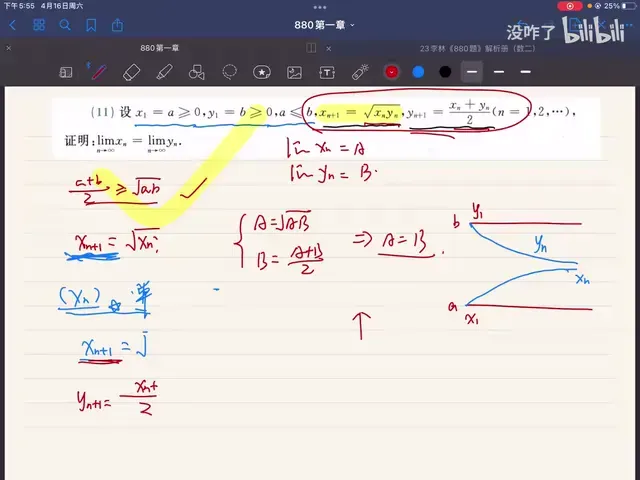 下午5:55 4月16日周六
25%
880第一章
没咋了 bilibili
880第一章
23李林《880题》解析册(数二)
(11) 设 x₁ = a ⩾ 0, y₁ = b ⩾ 0, a ⩽ b, xₙ₊₁ = √(xₙyₙ), yₙ₊₁ = (xₙ + yₙ)/2 (n = 1,2,⋯),
证明: lim_{n→∞} xₙ = lim_{n→∞} yₙ.
lim xₙ = A
lim yₙ = B.
(a+b)/2 ⩾ √ab
xₙ₊₁ = √xₙ
{ A = √AB
B = (A+B)/2
⇒ A = B.
(xₙ) 单
xₙ₊₁ = √
yₙ₊₁ = (xₙ+)/2
↑
b y₁
yₙ
xₙ
a x₁